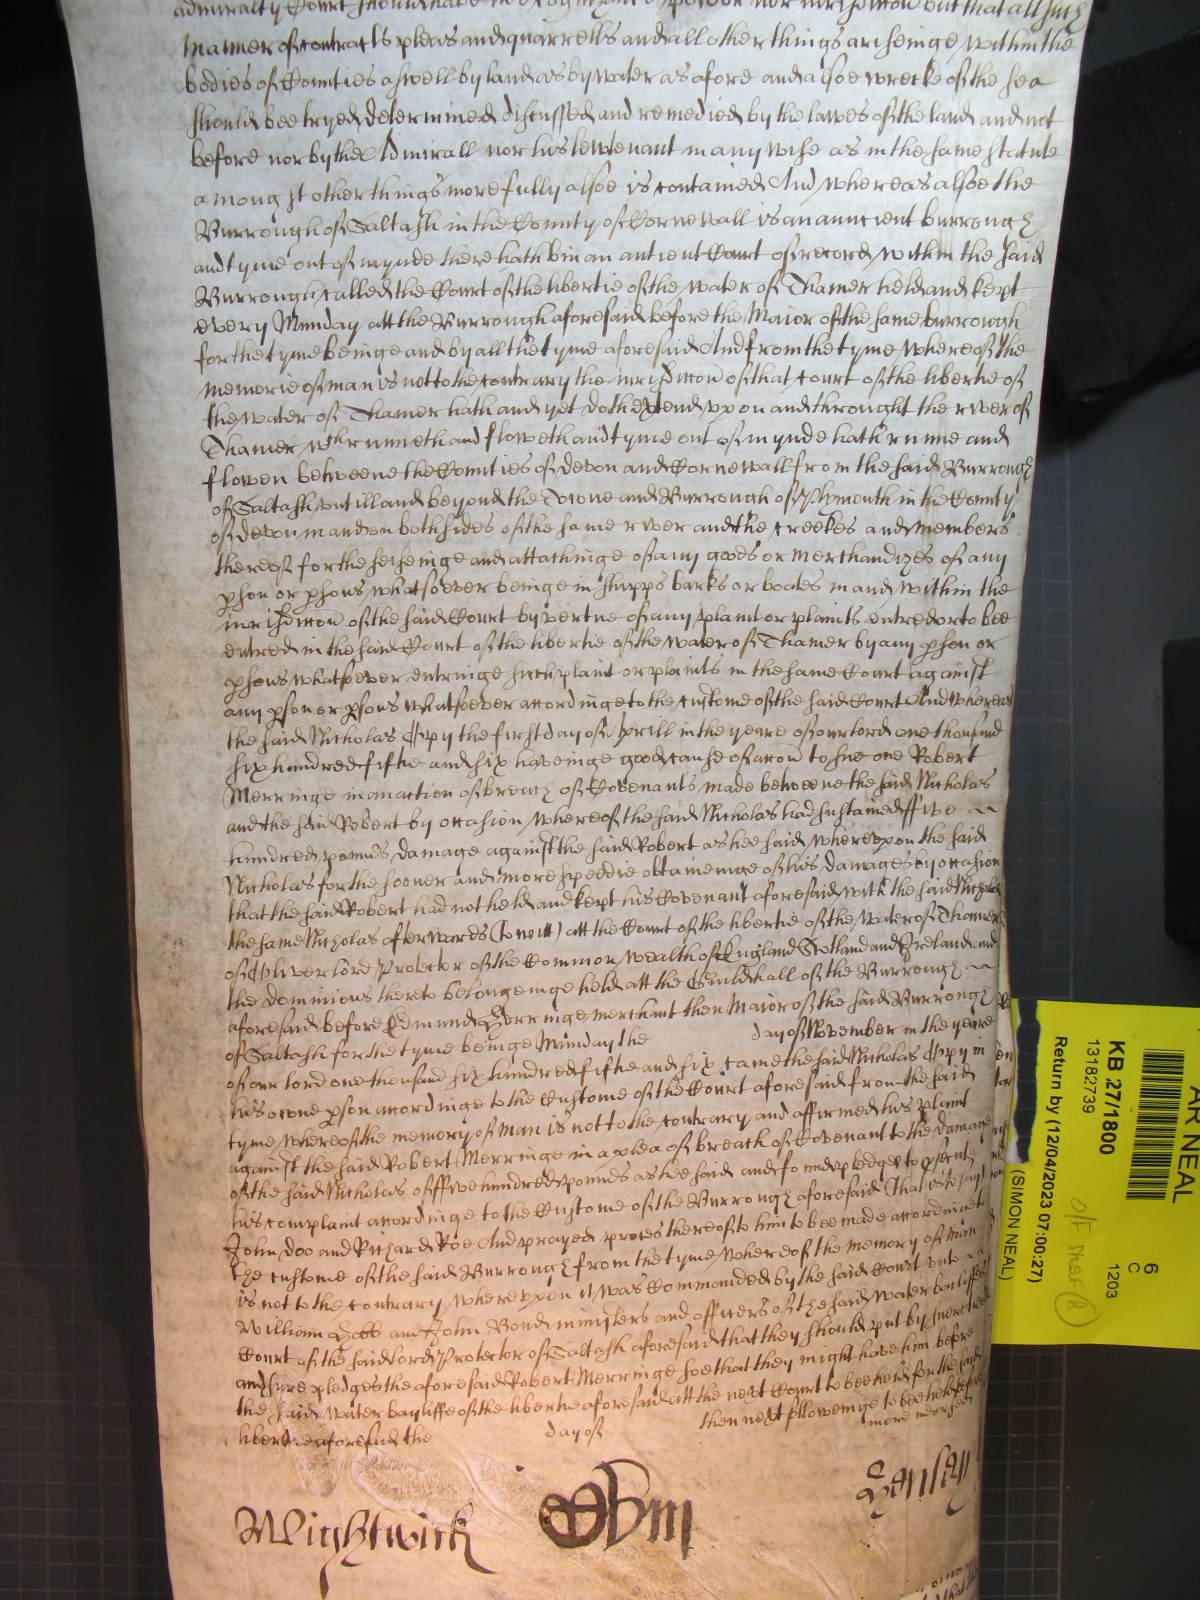 admiralty Court should have noe cognizance power nor jurisdiccon but that all such
manner of contracts pleas and quarrells and all other things ariseinge within the
bodies of Counties aswell by land as by water as afore and alsoe wrecke of the sea
should bee tryed determined discussed and remedied by the lawes of the land and not
before nor by the Admirall nor his lewtenant in any wise as in the same statute
amongst other things more fully alsoe is contained And whereas alsoe the
Burrough of Saltash in the County of Cornewall is an auncient burrough
and tyme out of mynde there hath bin an antient Court of record within the said
Burrough called the Court of the libertie of the water of Thamer held and kept
every Munday att the Burrough aforesaid before the Maior of the same burrough
for the tyme beinge and by all the tyme aforesaid And from the tyme whereof the
memorie of man is not to the contrary the jurisdiccon of that Court of the libertie of
the water of Thamer hath and yet doth extend upon and throught the river of
Thamer wch runneth and floweth and tyme out of mynde hath runne and
flowen betweene the Counties of devon and Cornewall from the said Burrough
of Saltash untill and beyond the Towne and Burrough of Plymouth in the County
of devon in and on both sides of the same river and the creekes and members
thereof for the seiseinge and attachinge of any goods or merchandizes of any
pson or psons whatsoever beinge in shipps barks or boates in and within the
jurisdiccon of the said Court by vertue of any plaint or plaints entred or to bee
entred in the said Court of the libertie of the water of Thamer by any pson or
psons whatsoever entringe such plaint or plaints in the same Court against
any pson or psons whatsoever accordinge to the custome of the said Court And whereas
the said Nicholas Opy the first day of Aprill in the yeare of our lord one thousand
six hundred fiftie and six haveinge good cause of accon to sue one Robert
Merringe in an action of breach of Covenants made betweene the said Nicholas
and the said Robert by occasion whereof the said Nicholas had sustained ffive
hundred pounds damage against the said Robert as hee said whereupon the said
Nicholas for the sooner and more speedie obtaineinge of his damages by occasion
that the said Robert had not held and kept his Covenant aforesaid with the said Nicholas
the same Nicholas afterwards (to witt) att the Court of the libertie of the water of Thamer
of Oliver lord Protector of the Common wealth of England Scotland and Ireland and
the dominions thereto belongeinge held att the Guildhall of the Burrough
aforesaid before Edmund Herringe merchant then Maior of the said Burrough
of Saltash for the tyme beinge Munday the day of November in the yeare
of our lord one thousand six hundred fiftie and six came the said Nicholas Opy in
his owne pson accordinge to the Custome of the Court aforesaid from the said
tyme whereof the memory of man is not to the contrary and affirmed his plaint
against the said Robert Merringe in a plea of breach of Covenant to the damage
of the said Nicholas of ffive hundred pounds as hee said and found pledges to psente
his complaint accordinge to the Custome of the Burrough aforesaid That is to say
John Doo and Richard Roe And prayed proces thereof to him to bee made accordinge to
the custome of the said Burrough from the tyme whereof the memory of man
is not to the contrary whereupon it was Commanded by the said Court unto
William Hobb and John Bond ministers and officers of the said water bailiffes
Court of the said lord Protector of Saltash aforesaid that they should put by
and sure pledges the aforesaid Robert Merringe soe that they might have him before
the said water bayliffe of the libertie aforesaid att the next Court to bee held for the said
libertie aforesaid the day of then next followeinge to bee held before
more indorsed
Wightwick
Ebm
Henley
AR NEAL
KB 27/1800
13182739
Return by (12/04/2023 07:00:27)
(SIMON NEAL)
6
C
1203